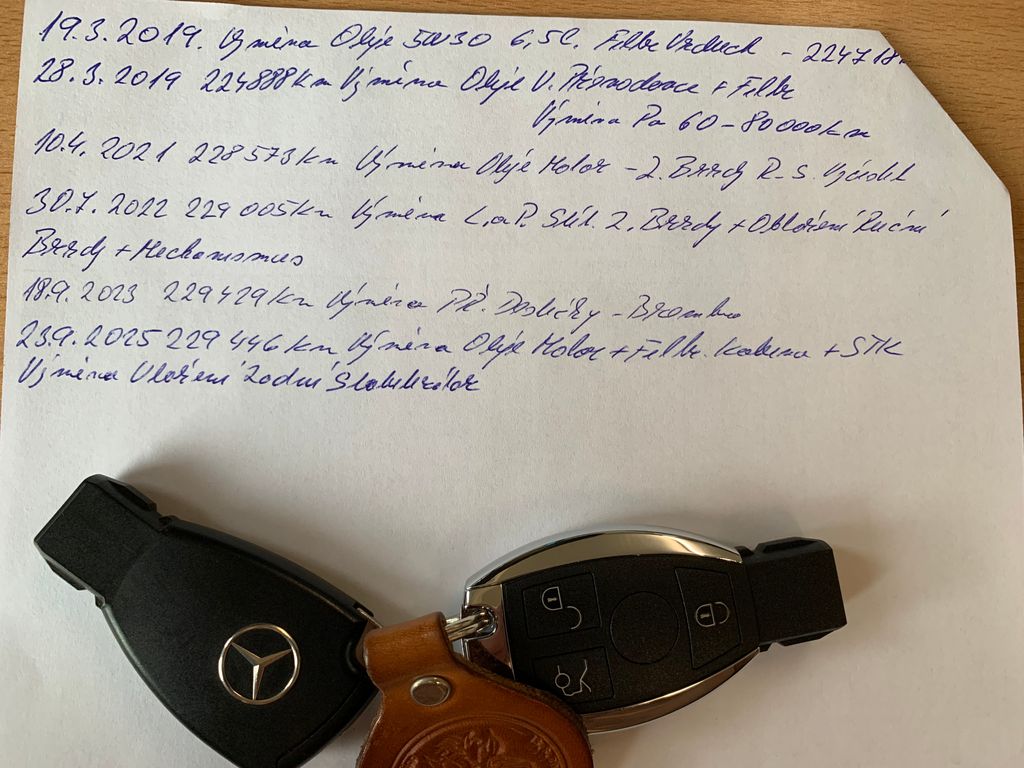 19.3.2019. Výměna Oleje 5W30 6,5l. Filtr Vzduch - 224718
28.3.2019 224888km Výměna Oleje V. Převodovce + Filtr
Výměna Po 60-80000km
10.4.2021 228573km Výměna Oleje Motor - Z. Brzdy
30.7.2022 229005km Výměna L.aP. Z. Brzdy + Obložení Ruční
Brzdy + Mechanismus
18.9.2023 229429km Výměna Př. Destičky - Brembo
23.9.2025 229446km Výměna Oleje Motor + Filtr. Kabina + STK
Výměna Uložení Zadní Stabilizátor